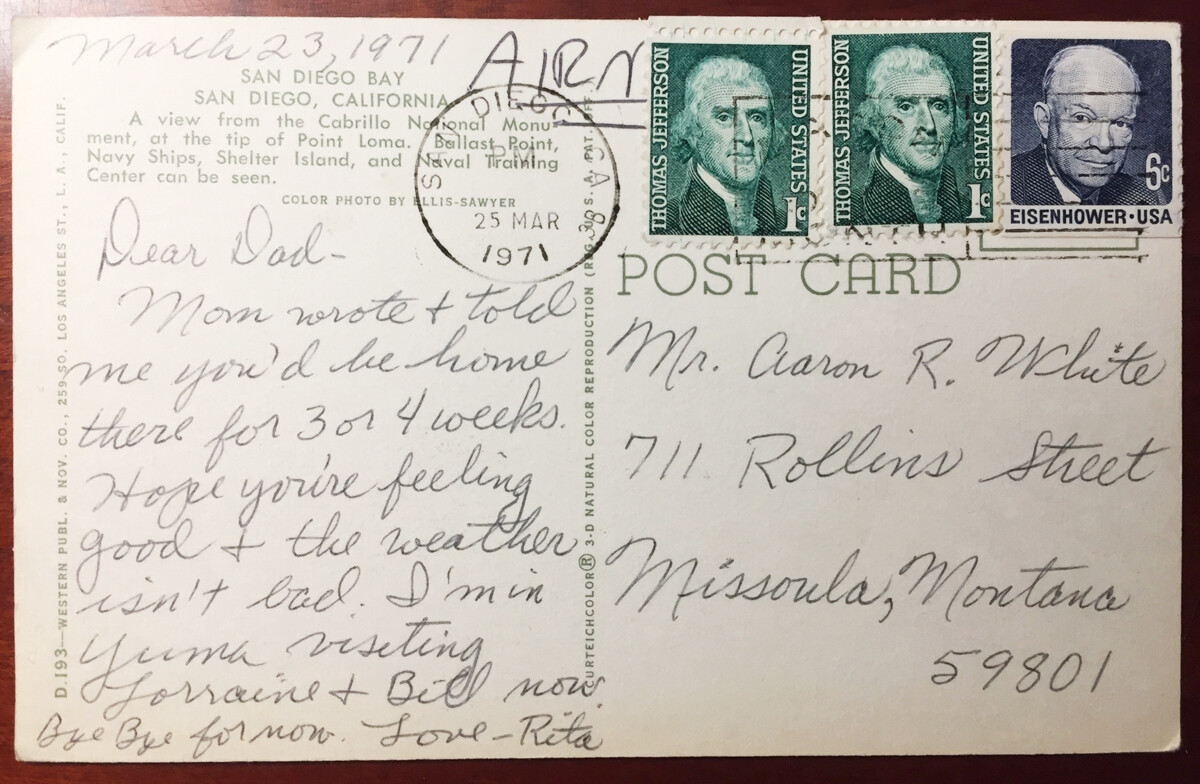 March 23, 1971
SAN DIEGO BAY
SAN DIEGO, CALIFORNIA
A view from the Cabrillo National Monu-
ment, at the tip of Point Loma. Ballast Point,
Navy Ships, Shelter Island, and Naval Training
Center can be seen.
COLOR PHOTO BY ELLIS-SAWYER
Dear Dad-
Mom wrote + told
me you'd be home
there for 3 or 4 weeks.
Hope you're feeling
good + the weather
isn't bad. I'm in
Yuma visiting
Lorraine + Bill now.
Bye Bye for now. Love-Rita
D.193—WESTERN PUBL. & NOV. CO., 259 SO. LOS ANGELES ST., L. A., CALIF.
SAN DIEGO CA
PM
25 MAR
1971
CURTEICHCOLOR® 3-D NATURAL COLOR REPRODUCTION (REG. U.S.A. PAT. OFF.
THOMAS JEFFERSON
UNITED STATES
1c
THOMAS JEFFERSON
UNITED STATES
1c
6c
EISENHOWER·USA
POST CARD
Mr. Aaron R. White
711 Rollins Street
Missoula, Montana
59801